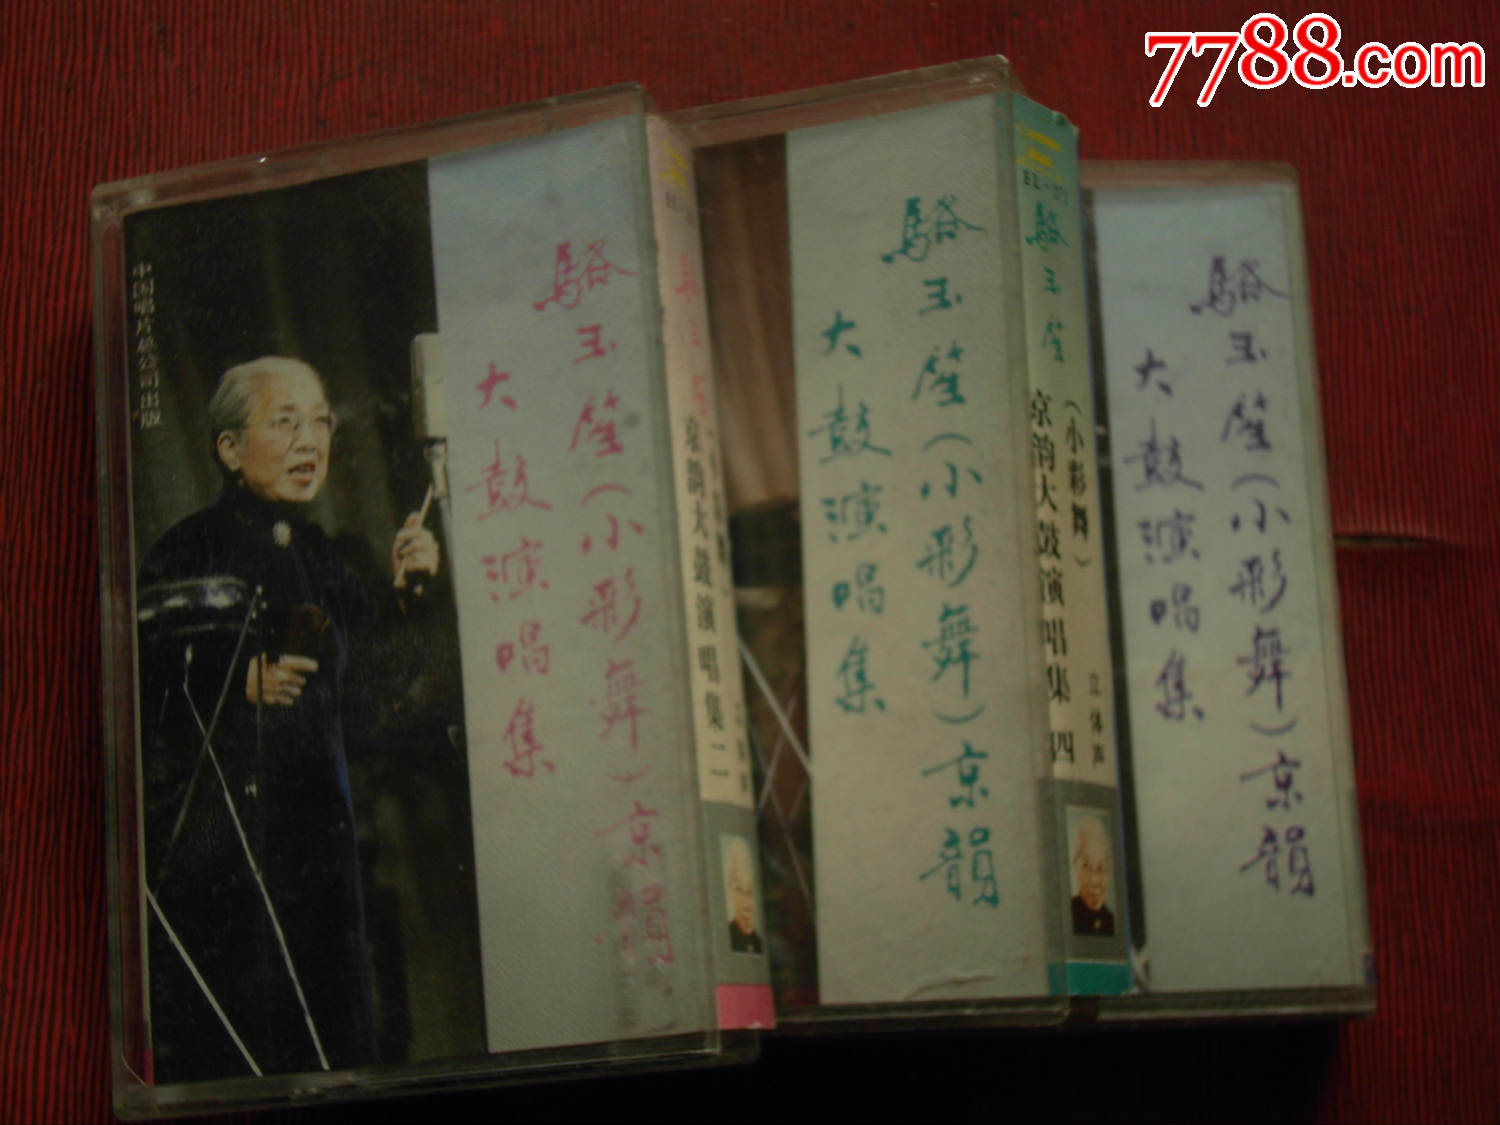 7788.com
中国唱片总公司出版
駱玉笙(小彩舞)京韻
大鼓演唱集
京韵大鼓演唱集二
駱玉笙(小彩舞)京韻
大鼓演唱集
駱玉笙
(小彩舞)
京韵大鼓演唱集 四
立体声
駱玉笙(小彩舞)京韻
大鼓演唱集